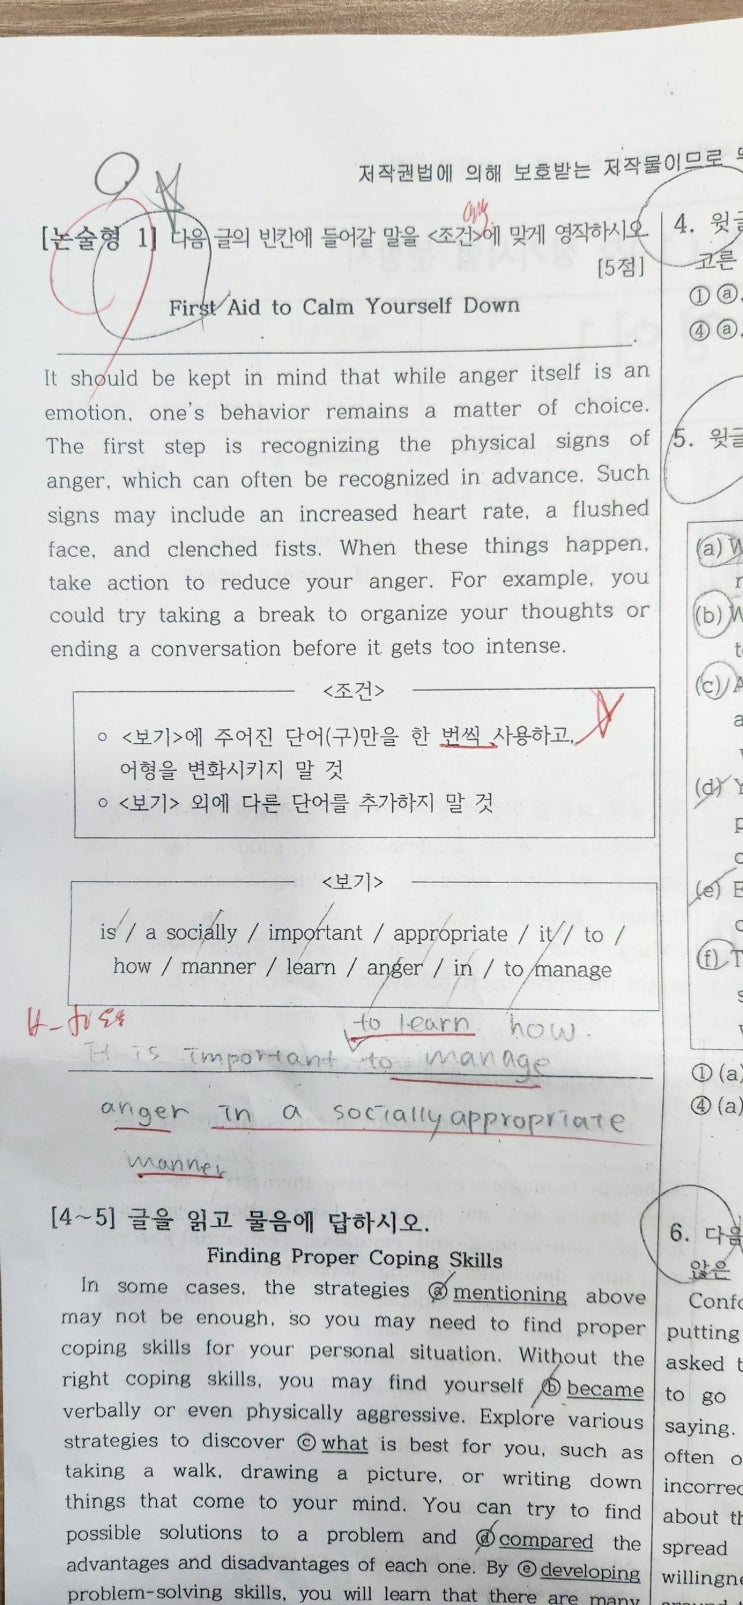 저작권법에 의해 보호받는 저작물이므로
[논술형 1] 다음 글의 빈칸에 들어갈 말을 <조건>에 맞게 영작하시오.
[5점]
First Aid to Calm Yourself Down
It should be kept in mind that while anger itself is an
emotion, one's behavior remains a matter of choice.
The first step is recognizing the physical signs of
anger, which can often be recognized in advance. Such
signs may include an increased heart rate, a flushed
face, and clenched fists. When these things happen,
take action to reduce your anger. For example, you
could try taking a break to organize your thoughts or
ending a conversation before it gets too intense.
<조건>
○ <보기>에 주어진 단어(구)만을 한 번씩 사용하고,
어형을 변화시키지 말 것
○ <보기> 외에 다른 단어를 추가하지 말 것
<보기>
is / a socially / important / appropriate / it / to /
how / manner / learn / anger / in / to manage
to learn how.
It is important to manage
anger in a socially appropriate
manner
[4~5] 글을 읽고 물음에 답하시오.
Finding Proper Coping Skills
In some cases, the strategies ⓐ mentioning above
may not be enough, so you may need to find proper
coping skills for your personal situation. Without the
right coping skills, you may find yourself ⓑ became
verbally or even physically aggressive. Explore various
strategies to discover ⓒ what is best for you, such as
taking a walk, drawing a picture, or writing down
things that come to your mind. You can try to find
possible solutions to a problem and ⓓ compared the
advantages and disadvantages of each one. By ⓔ developing
problem-solving skills, you will learn that there are many
4. 윗글
고른
① ⓐ,
④ ⓐ,
5. 윗글
(a) W
(b) W
(c) A
(d) Y
(e) E
(f) T
① (a)
④ (a)
6. 다음
않은
putting
asked t
to go
saying.
often o
incorrec
about th
spread
willingne